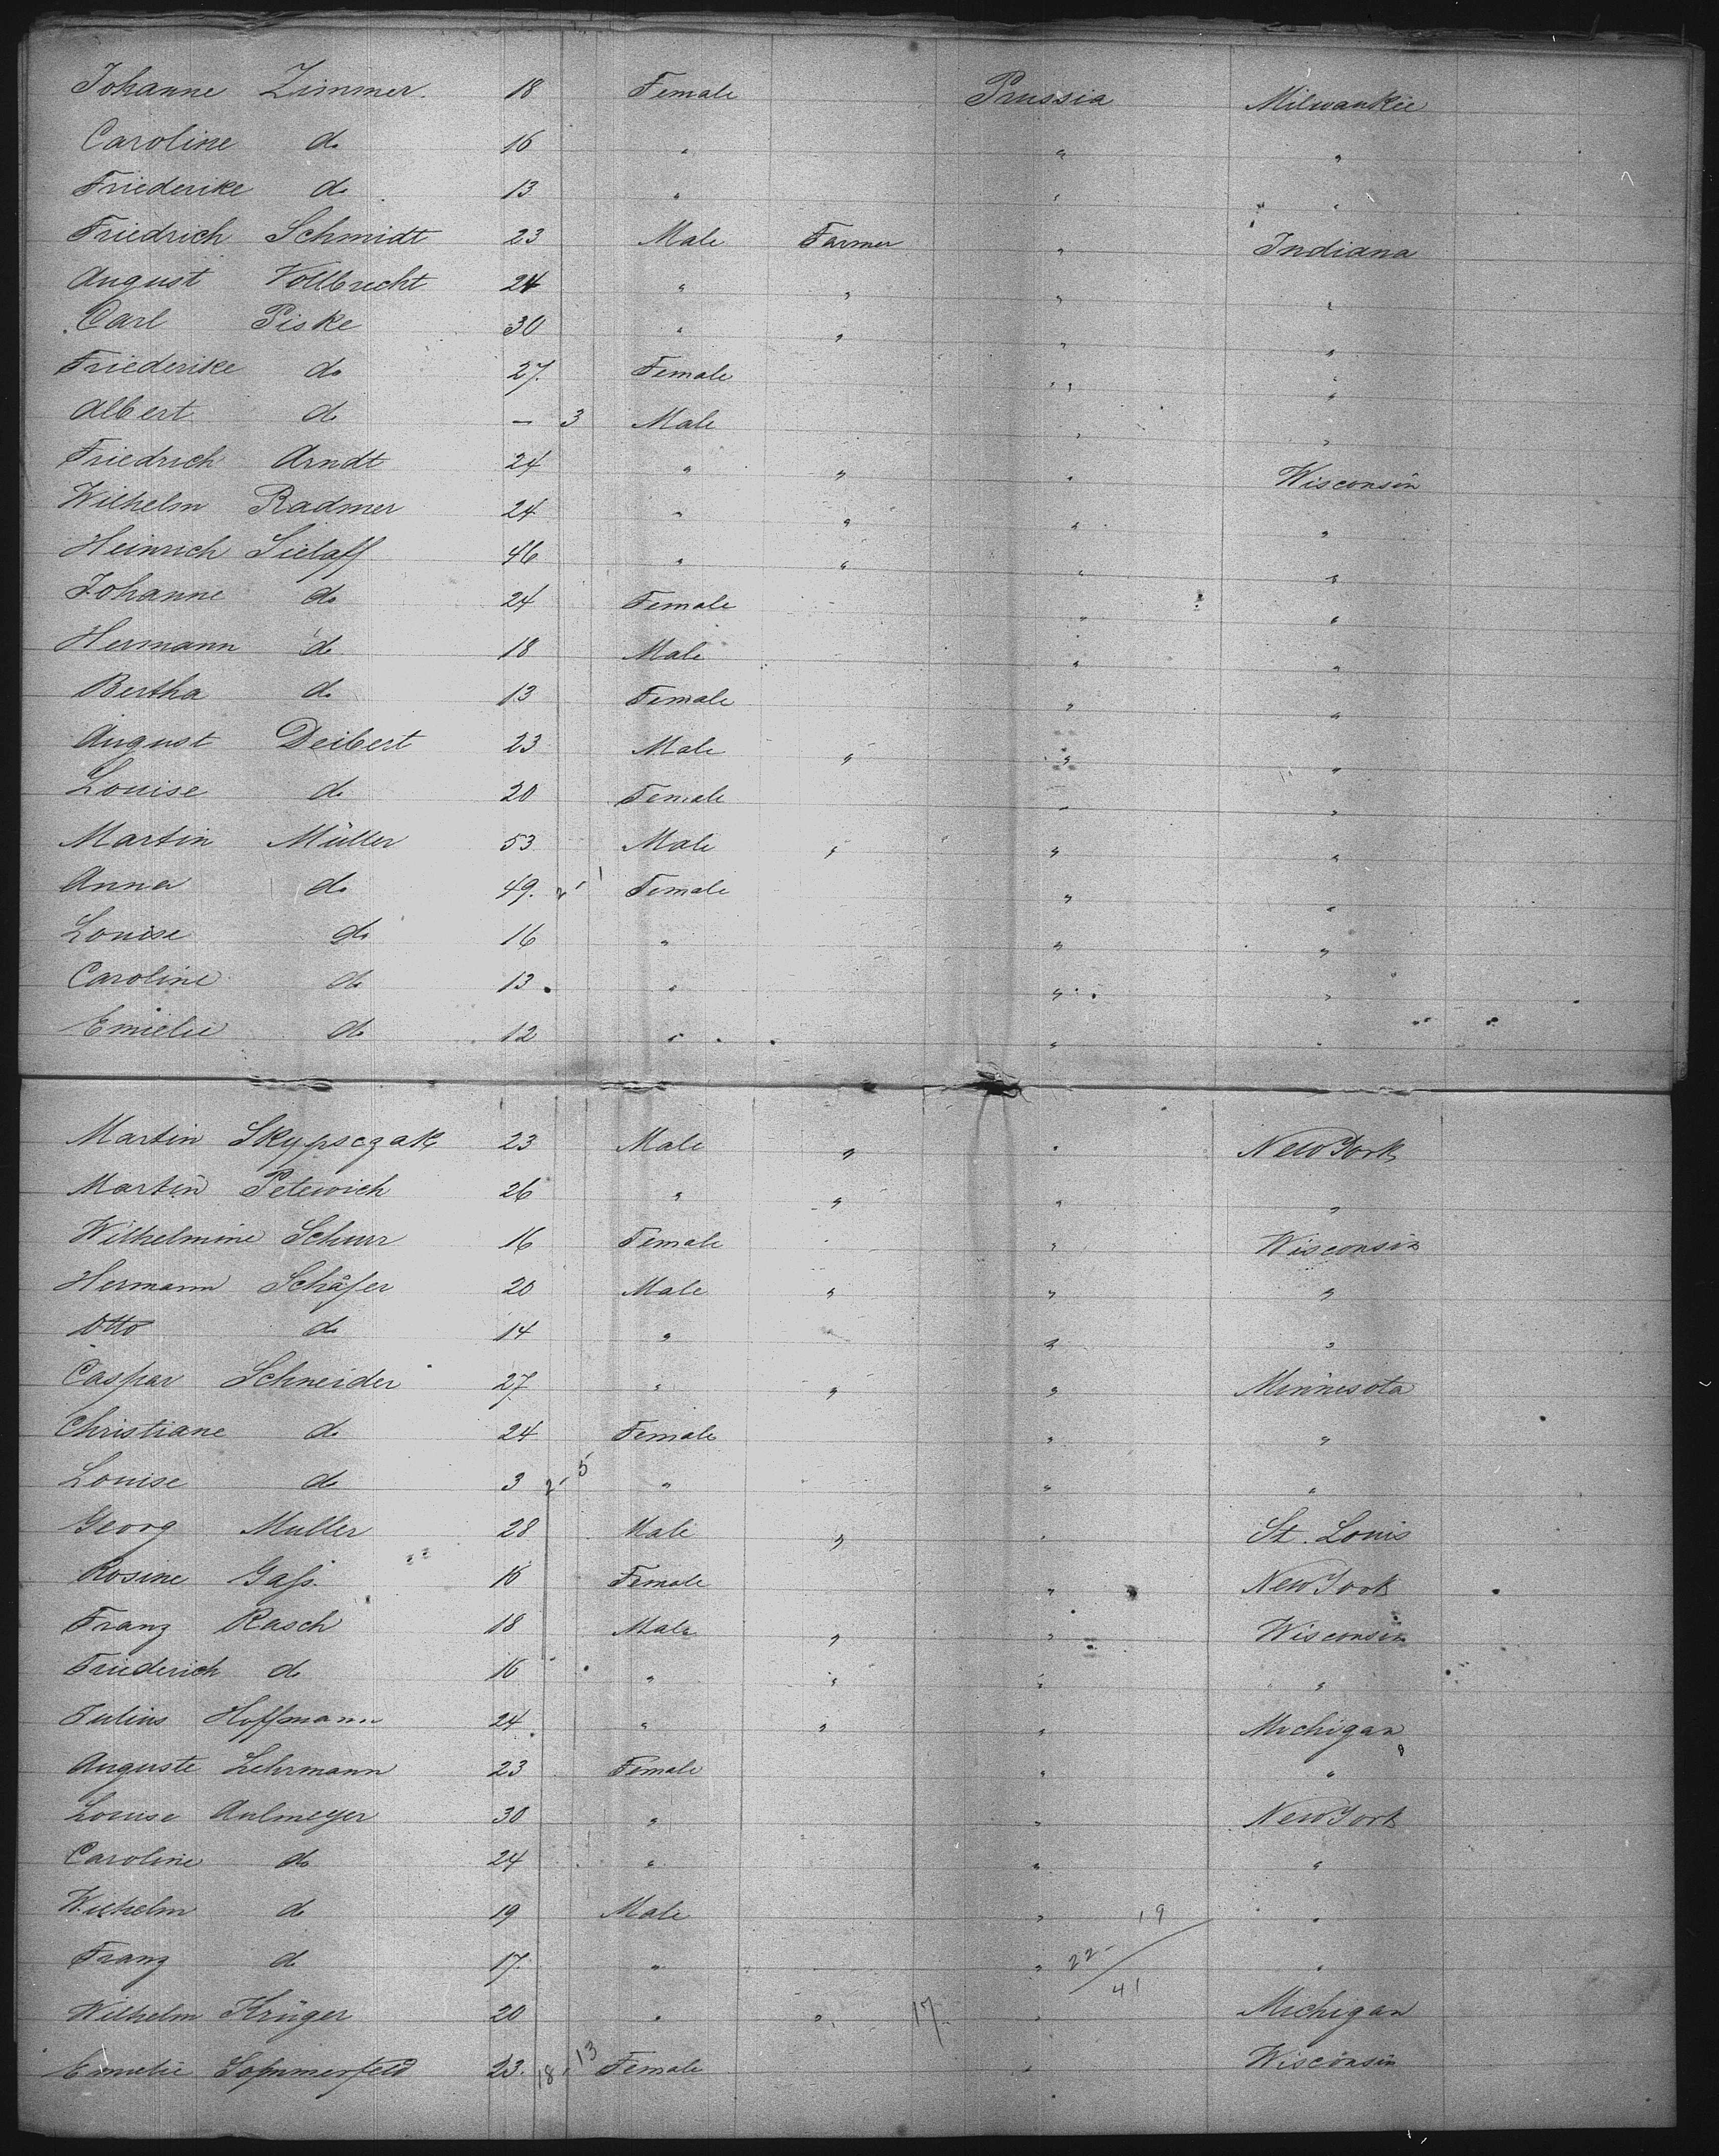 Johanne Zimmer 18 Female Prussia Milwaukie
Caroline do 16 " " "
Friederike do 13 " " "
Friedrich Schmidt 23 Male Farmer " Indiana
August Vollbrecht 24 " " " "
Carl Piske 30 " " " "
Friederike do 27 Female " "
Albert do — 3 Male " "
Friedrich Arndt 24 " " " Wisconsin
Wilhelm Radmer 24 " " " "
Heinrich Sielaff 46 " " " "
Johanne do 24 Female " "
Hermann do 18 Male " "
Bertha do 13 Female " "
August Deibert 23 Male " " "
Louise do 20 Female " "
Martin Müller 53 Male " " "
Anna do 49. 2 1 Female " "
Louise do 16 " " "
Caroline do 13 " " "
Emielie do 12 " " "
Martin Skypsczak 23 Male " " New York
Martin Petewich 26 " " " "
Wilhelmine Schurr 16 Female " Wisconsin
Hermann Schäfer 20 Male " " "
Otto do 14 " " "
Caspar Schneider 27 " " " Minnesota
Christiane do 24 Female " "
Louise do 3 2 5 " " "
Georg Muller 28 Male " " St. Louis
Rosine Gaß 16 Female " New York
Franz Rasch 18 Male " " Wisconsin
Friederich do 16 " " " "
Julius Hoffmann 24 " " " Michigan
Auguste Lehrmann 23 Female " "
Louise Aulmeyer 30 " " New York
Caroline do 24 " " "
Wilhelm do 19 Male " 19 "
Franz do 17 " " 22 41 "
Wilhelm Krüger 20 " " 17 " Michigan
Emelie Sommerfeld 23. 18 13 Female " Wisconsin